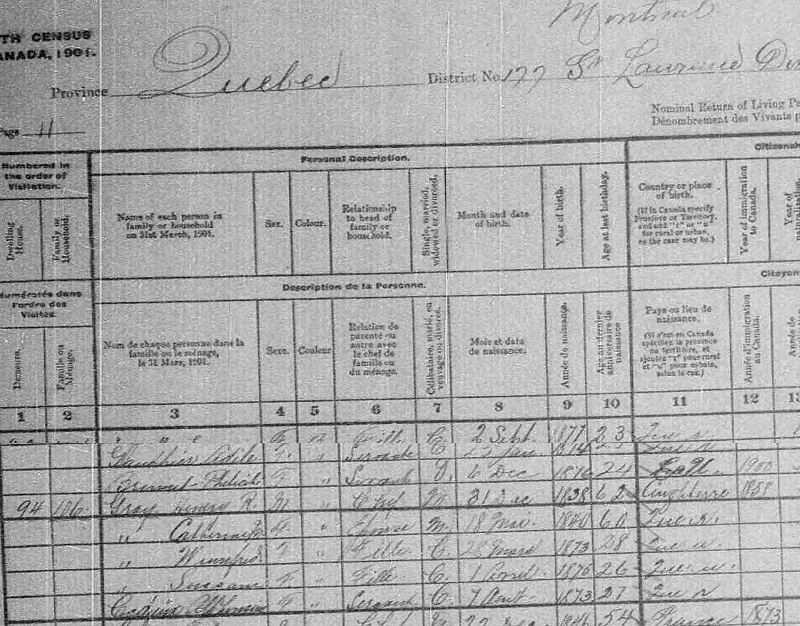 Montreal
TH CENSUS
ANADA, 1901.
Province Quebec District No. 177 St. Lawrence
Page 11
Nominal Return of Living Pe
Dénombrement des Vivants p
Numbered in the order of Visitation.
Personal Description.
Citizensh
Dwelling House.
Family or Household.
Name of each person in family or household on 31st March, 1901.
Sex.
Colour.
Relationship to head of family or household.
Single, married, widowed or divorced.
Month and date of birth.
Year of birth.
Age at last birthday.
Country or place of birth.
(If in Canada specify Province or Territory, and add "r" or "u" for rural or urban, as the case may be.)
Year of immigration to Canada.
Year of
Numérotés dans l'ordre des Visites.
Description de la Personne.
Citoyen
Demeure.
Famille ou Ménage.
Nom de chaque personne dans la famille ou le ménage, le 31 Mars, 1901.
Sexe.
Couleur
Relation de parenté ou autre avec le chef de famille ou du ménage.
Célibataire, marié, en veuvage ou divorcé.
Mois et date de naissance.
Année de naissance.
Age au dernier anniversaire de naissance
Pays ou lieu de naissance.
(Si c'est en Canada spécifiez la province ou territoire, et ajoutez "r" pour rural et "u" pour urbain, selon le cas.)
Année d'immigration au Canada.
Année de
1 2 3 4 5 6 7 8 9 10 11 12 13
F " Fille C. 2 Sept. 1877 23 Que u
F. " Servante C.
F " Servante 6 Dec 1876 24 1900
94 106 Gray Henry R. M " Chef M. 31 Dec 1838 62 Angleterre 1858
" Catherine F. " M. 18 Mai 1840 60 Que r.
" Winnifred F " Fille C. 1873 28 Que u.
" F. " Fille C. 1 Avril 1875 26 Que u.
F " Servante C. 7 Aout 1873 27 Que
54 France 1873